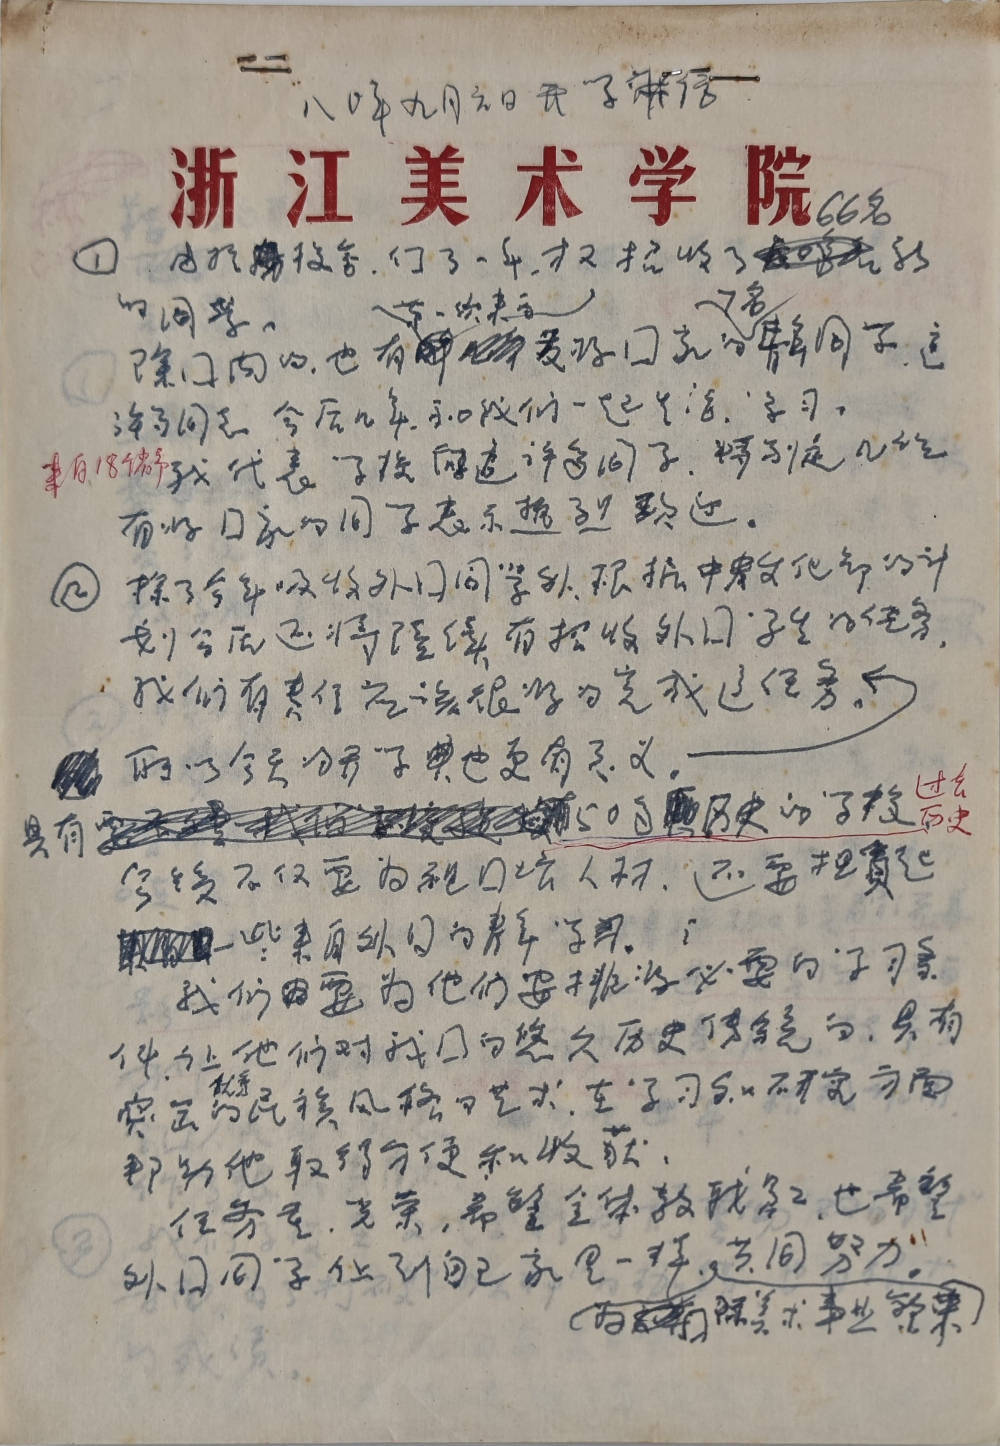 八〇年九月六日开学
浙江美术学院
66名
① 由于校舍,们了一年,才又招收了 新
的同学。
第一次来 7名
除国内的,也有 友好国家的青年同学,这
许多同志 今后几年,和我们一起生活,学习。
来自18个省市
我代表学校 向这许多同学,特别是几位
有好国家的同学表示热烈欢迎。
② 除了今年吸收外国同学外,根据中央文化部的计
划今后还将陆续有招收外国学生的任务,
我们有责任应该很好的完成这任务。
所以今天的开学典也更有意义。
过去
历史
具有 50多 历史的学校
今后不仅要为祖国培人材,还要担负起
一些来自外国的青年学习。
我们要为他们安排好必要的学习条
件,让他们对我国的悠久历史传统的,具有
突出的民族风格的艺术,在学习和研究方面
帮助他取得方便和收获。
任务重,光荣,希望全体教职员工,也希望
外国同学住到自己家里一样,共同努力。
(为 美术事业繁荣)